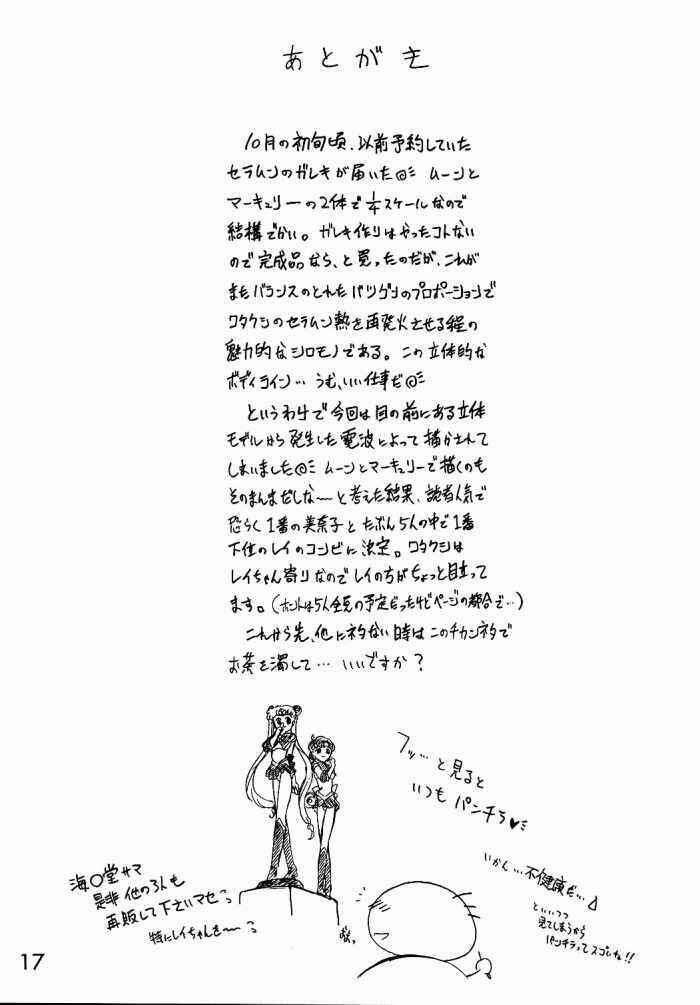 あとがき
10月の初旬頃、以前予約していた
セラムンのガレキが届いた◎ミ ムーンと
マーキュリーの2体で1/4スケールなので
結構でかい。ガレキ作りはやったコトない
ので完成品なら、と買ったのだが、これが
またバランスのとれたバツグンのプロポーションで
ワタクシのセラムン熱を再発火させる程の
魅力的なシロモノである。この立体的な
ボディライン… うむ、いい仕事だ◎ミ
というわけで今回は目の前にある立体
モデルから発生した電波によって描かされて
しまいました◎ミ ムーンとマーキュリーで描くのも
そのまんまだしな〜と考えた結果、読者人気で
恐らく1番の美奈子とたぶん5人の中で1番
下位のレイのコンビに決定。ワタクシは
レイちゃん寄りなのでレイの方がちょっと目立って
ます。(ホントは5人全員の予定だったけどページの都合で…)
これから先、他にネタない時はこのチカンネタで
お茶を濁して… いいですか?
フッ…と見ると
いつもパンチラ♥ミ
いかん…不健康だ…
といいつつ
見てしまうから
パンチラってスゴいね!!
海○堂サマ
是非他の3人も
再販して下さいマセ
特にレイちゃんを〜
17